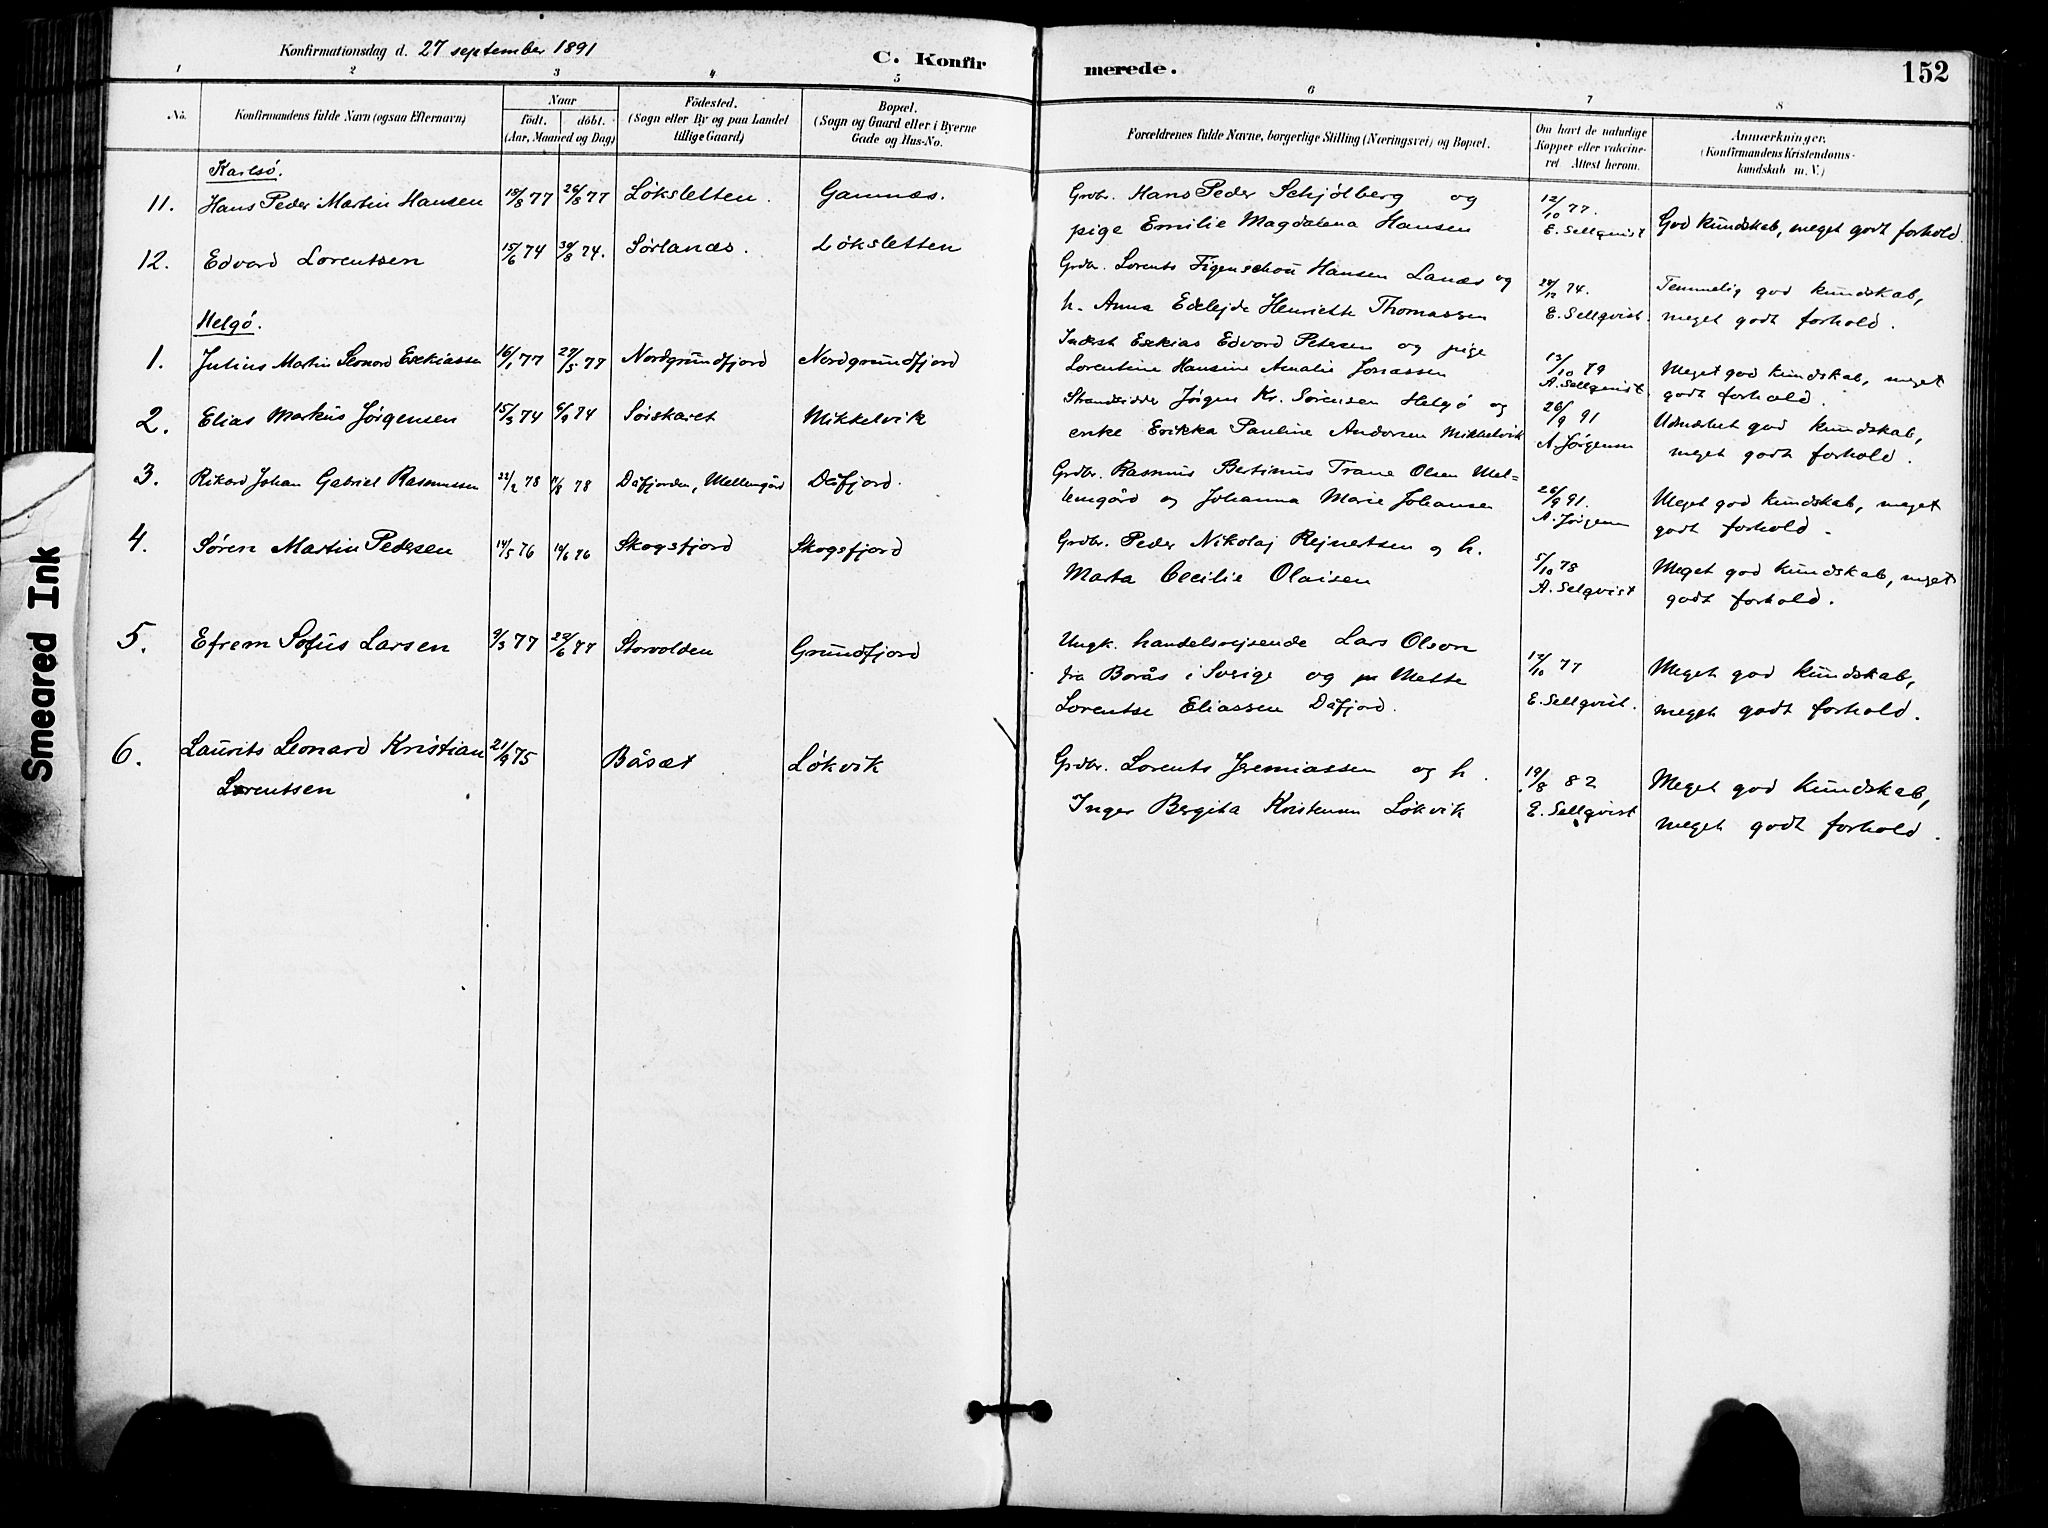 Konfirmationsdag d. 27 september 1891
C. Konfirmerede.
152
1 2 3 4 5 6 7 8
No. Konfirmandens fulde Navn (ogsaa Efternavn) Naar Født. døbt. (Aar, Maaned og Dag) Fødested. (Sogn eller By og paa Landet tillige Gaard) Bopæl. (Sogn og Gaard eller i Byerne Gade og Hus-No. Forældrenes fulde Navne, borgerlige Stilling (Næringsvei) og Bopæl. Om havt de naturlige Kopper eller vakcineret. Attest herom. Anmærkninger. (Konfirmandens Kristendomskundskab m. V.)
Karlsø.
11. Hans Peder Martin Hansen 18/8 77 26/8 77 Løksletten. Gamnæs. Grdbr. Hans Peder Schjølberg og 12/10 77.
pige Emilie Magdalena Hansen E. Sellqvist God kundskab, meget godt forhold.
12. Edvard Lorentsen 15/6 74 30/8 74. Sørlanæs. Løksletten Grdbr. Lorents Figenschou Hansen Lanæs og /12 74. Temmelig god kundskab,
h. Anna Edelejde Henriette Thomassen E. Sellqvist. meget godt forhold.
Helgø.
1. Julius Martin Leonard Esekiassen 16/1 77 27/5 77 Nordgrundfjord Nordgrundfjord Inderst Esekias Edvard Petersen og pige 13/10 79 Meget god kundskab, meget
Lorentine Hansine Amalie Jonassen A. Sellqvist godt forhold.
2. Elias Markus Jørgensen 15/3 74 6/9 74 Sørskaret Mikkelvik Strandsidder Jørgen Kr. Sørensen Helgø og 26/9 91 Udmærket god kundskab,
enke Erikka Pauline Andersen Mikkelvik A. Jørgensen meget godt forhold.
3. Rikard Johan Gabriel Rasmussen 22/2 78 /8 78 Dåfjorden, Mellemgård Dåfjord. Grdbr. Rasmus Bertinus Trane Olsen Mel=
lemgård og Johanna Marie Johansen 26/9 91. Meget god kundskab, meget
A. Jørgensen godt forhold.
4. Søren Martin Pedersen 14/5 76 14/6 76 Skogsfjord Skogsfjord Grdbr. Peder Nikolaj Rejnertsen og h. 5/10 78 Meget god kundskab, meget
Marta Cecilie Olaisen A. Selqvist godt forhold.
5. Efrem Sofus Larsen 9/3 77 29/6 77 Storvolden Grundfjord Ungk. handelsrejsende Lars Olson 12/10 77 Meget god kundskab,
fra Borås i Sverige og Mette
Lorentse Eliassen Dåfjord. E. Sellqvist. meget godt forhold.
6. Laurits Leonard Kristian 21/9 75 Båsæt Løkvik Grdbr. Lorents Jeremiassen og h. 19/8 82 Meget god kundskab,
Lorentsen Inger Bergita Kristensen Løkvik E. Sellqvist meget godt forhold.
Smeared Ink